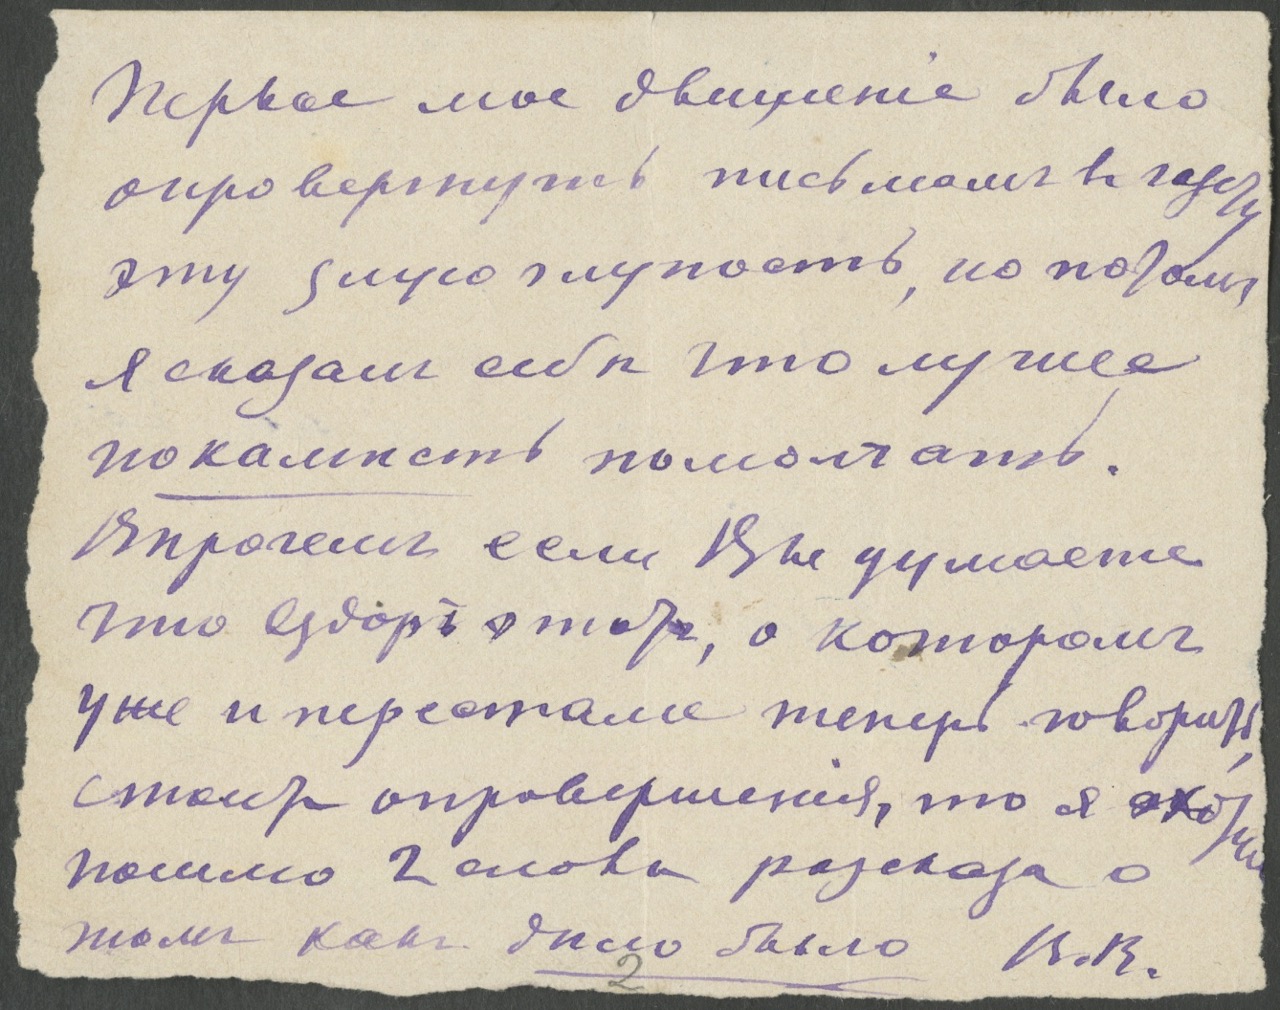 Первое мое движеніе было
опровергнуть письмомъ въ газету
эту злую глупость, но потомъ
я сказалъ себѣ что лучшее
покамѣсть помолчать.
Впрочемъ если Вы думаете
что вздоръ этотъ, о которомъ
уже и перестали теперь говорить,
стоитъ опроверженія, то я охотно
пошлю 2 слова разсказа о
томъ какъ дѣло было В.В.
2